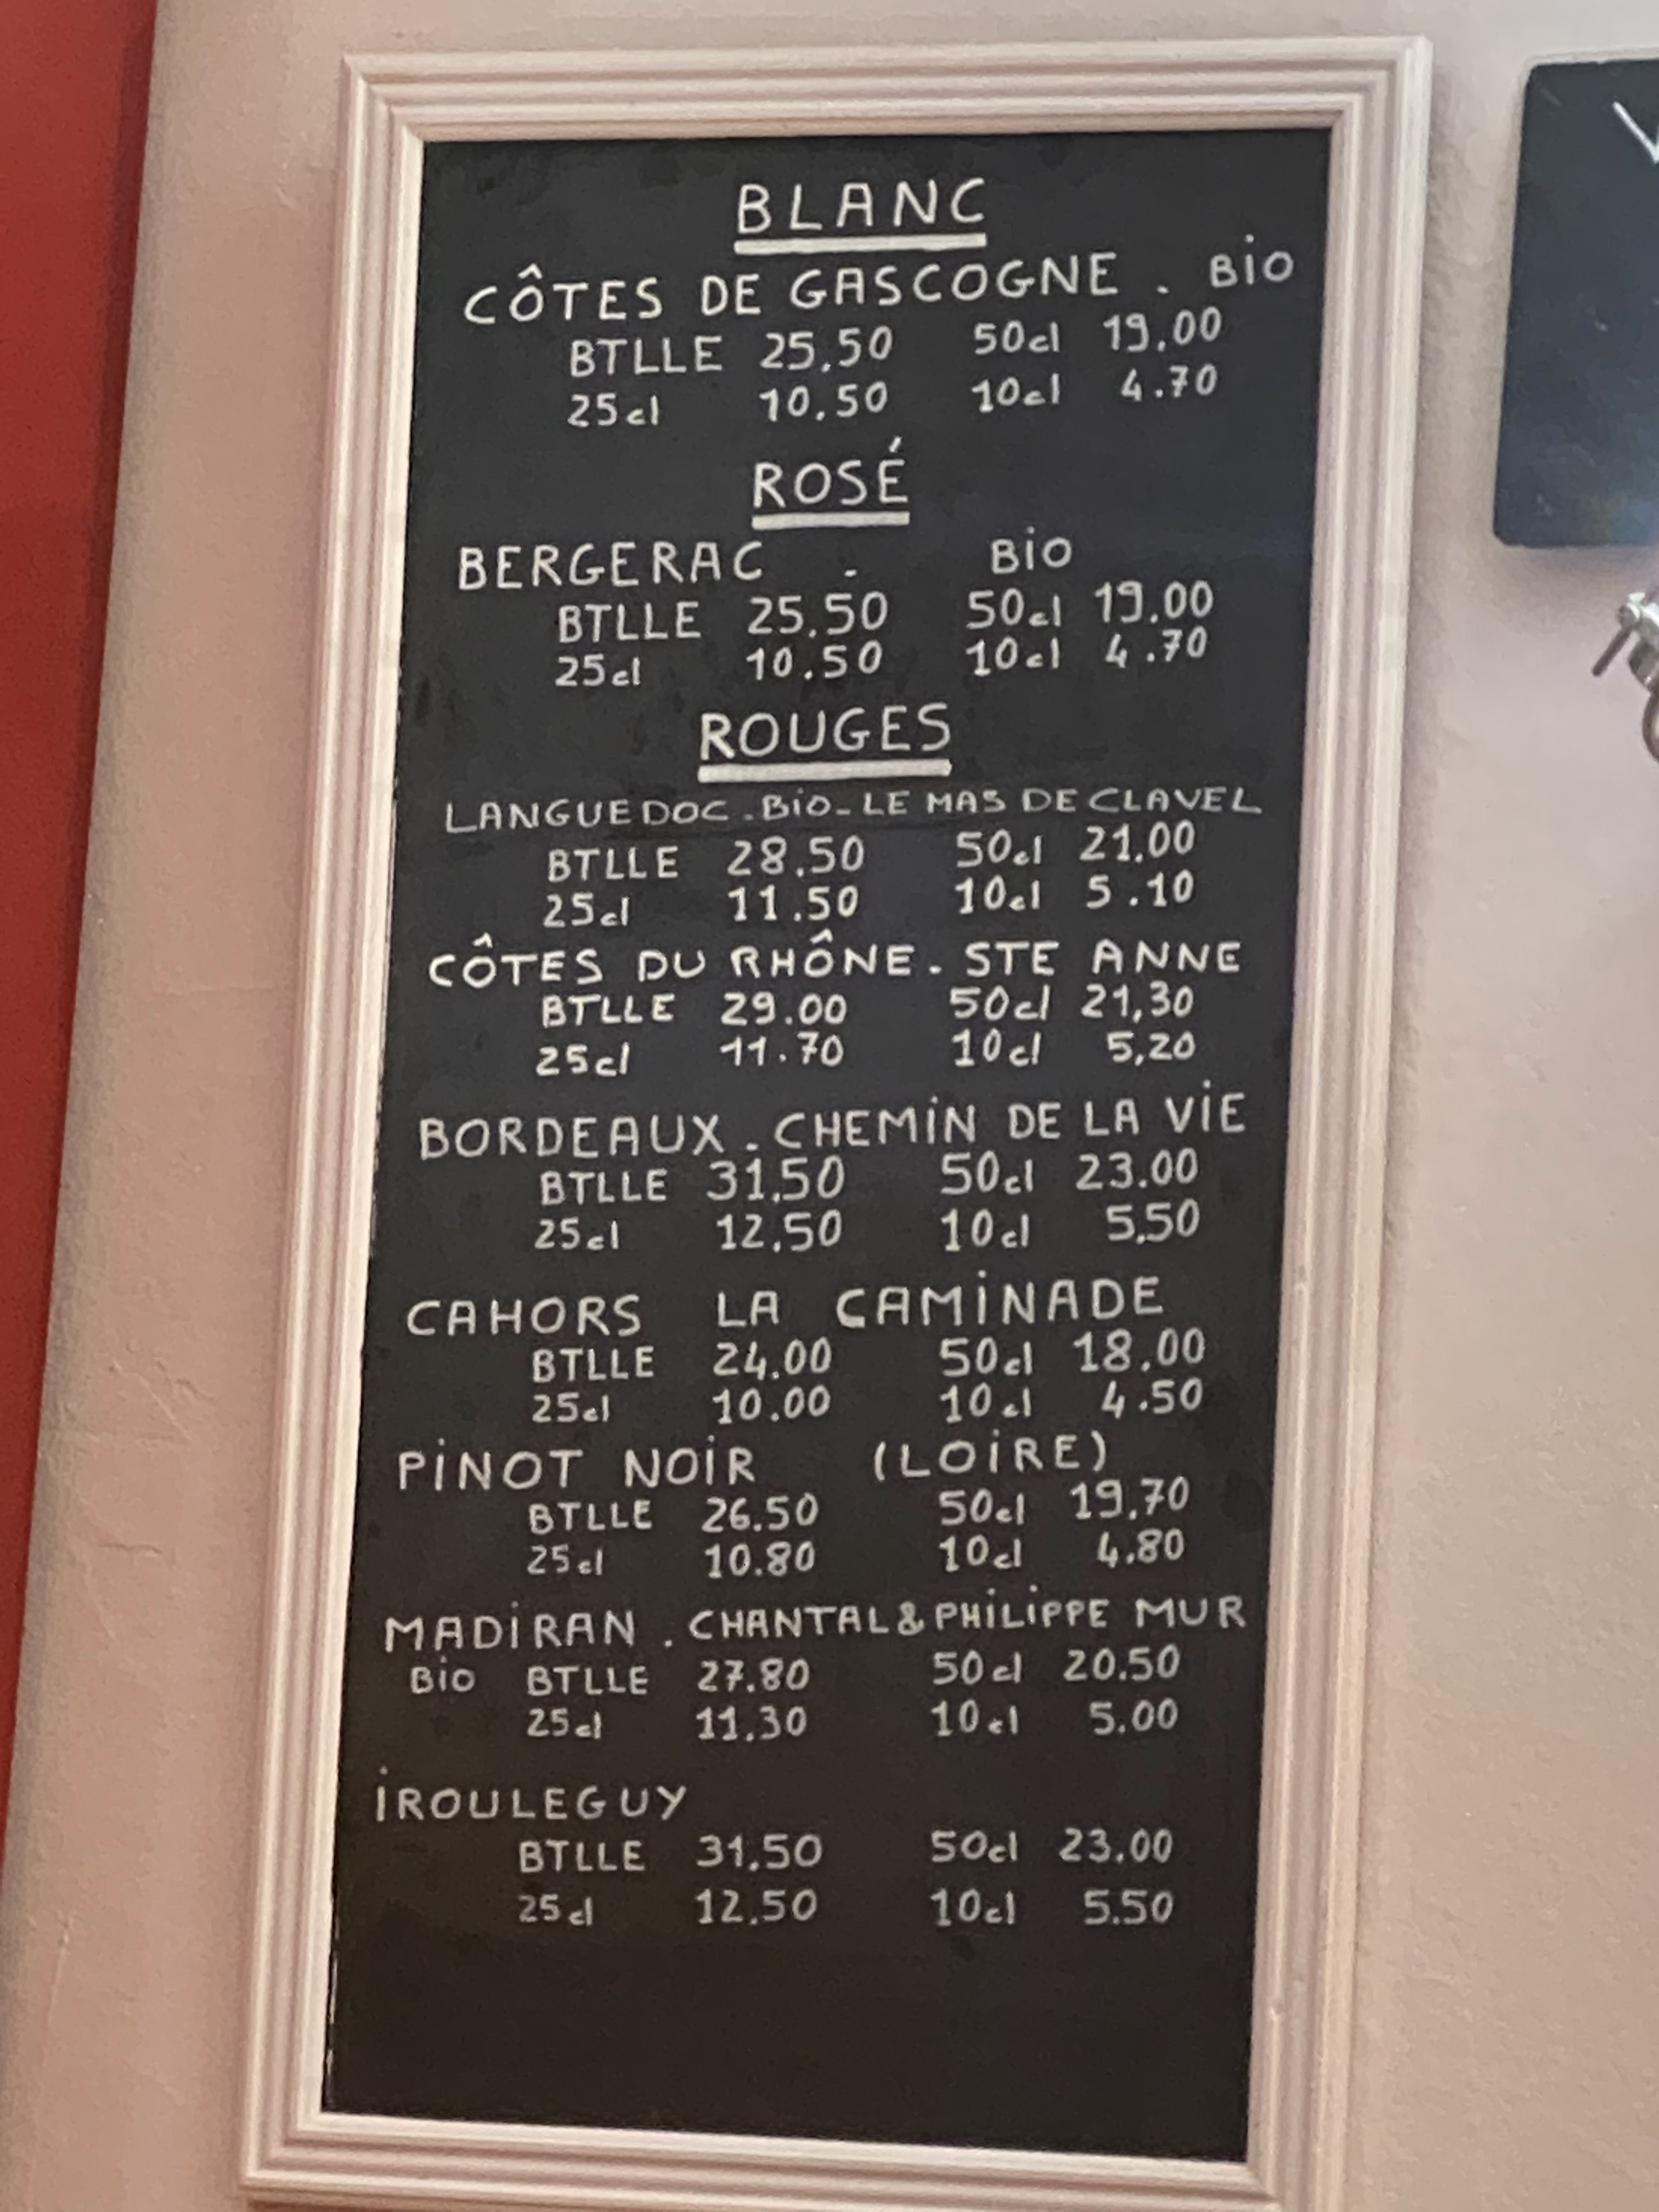 BLANC
CÔTES DE GASCOGNE . BiO
BTLLE 25.50 50cl 19.00
25cl 10.50 10cl 4.70
ROSÉ
BERGERAC . BiO
BTLLE 25.50 50cl 19.00
25cl 10.50 10cl 4.70
ROUGES
LANGUEDOC . BiO - LE MAS DE CLAVEL
BTLLE 28.50 50cl 21.00
25cl 11.50 10cl 5.10
CÔTES DU RHÔNE . STE ANNE
BTLLE 29.00 50cl 21,30
25cl 11.70 10cl 5,20
BORDEAUX . CHEMiN DE LA ViE
BTLLE 31.50 50cl 23.00
25cl 12.50 10cl 5.50
CAHORS LA CAMiNADE
BTLLE 24.00 50cl 18.00
25cl 10.00 10cl 4.50
PiNOT NOiR (LOiRE)
BTLLE 26.50 50cl 19.70
25cl 10.80 10cl 4.80
MADiRAN . CHANTAL & PHiLiPPE MUR
BiO BTLLE 27.80 50cl 20.50
25cl 11.30 10cl 5.00
iROULEGUY
BTLLE 31.50 50cl 23.00
25cl 12.50 10cl 5.50